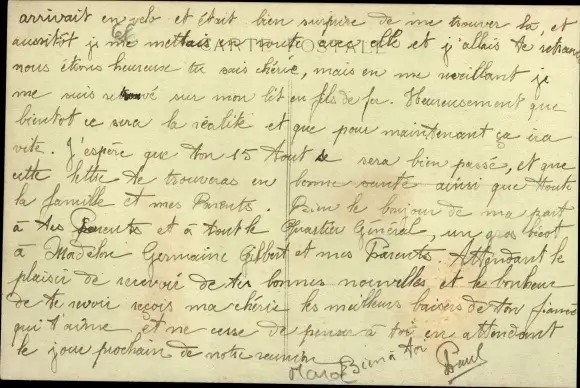 arrivait en velo et était bien surprise de me trouver la, et
aussitôt je me mettais en route avec elle et j'allais te retrouver
CARTE POSTALE
nous étions heureux tu sais chérie, mais en me reveillant je
me suis retrouvé sur mon lit en fils de fer. Heureusement que
bientot ce sera la réalité et que pour maintenant ça ira
vite. J'espère que ton 15 Aout se sera bien passé, et que
cette lettre te trouveras en bonne santé ainsi que toute
la famille et mes Parents. Bien le bonjour de ma part
à tes Parents et à tout le Quartier Général, un gros bicot
à Madelon Germaine Gilbert et mes Parents. Attendant le
plaisir de recevoir de tes bonnes nouvelles et le bonheur
de te revoir reçois ma chérie les meilleurs baisers de ton fiancé
qui t'aime et ne cesse de penser à toi en attendant
le jour prochain de notre reunion
Bien à toi
Paul